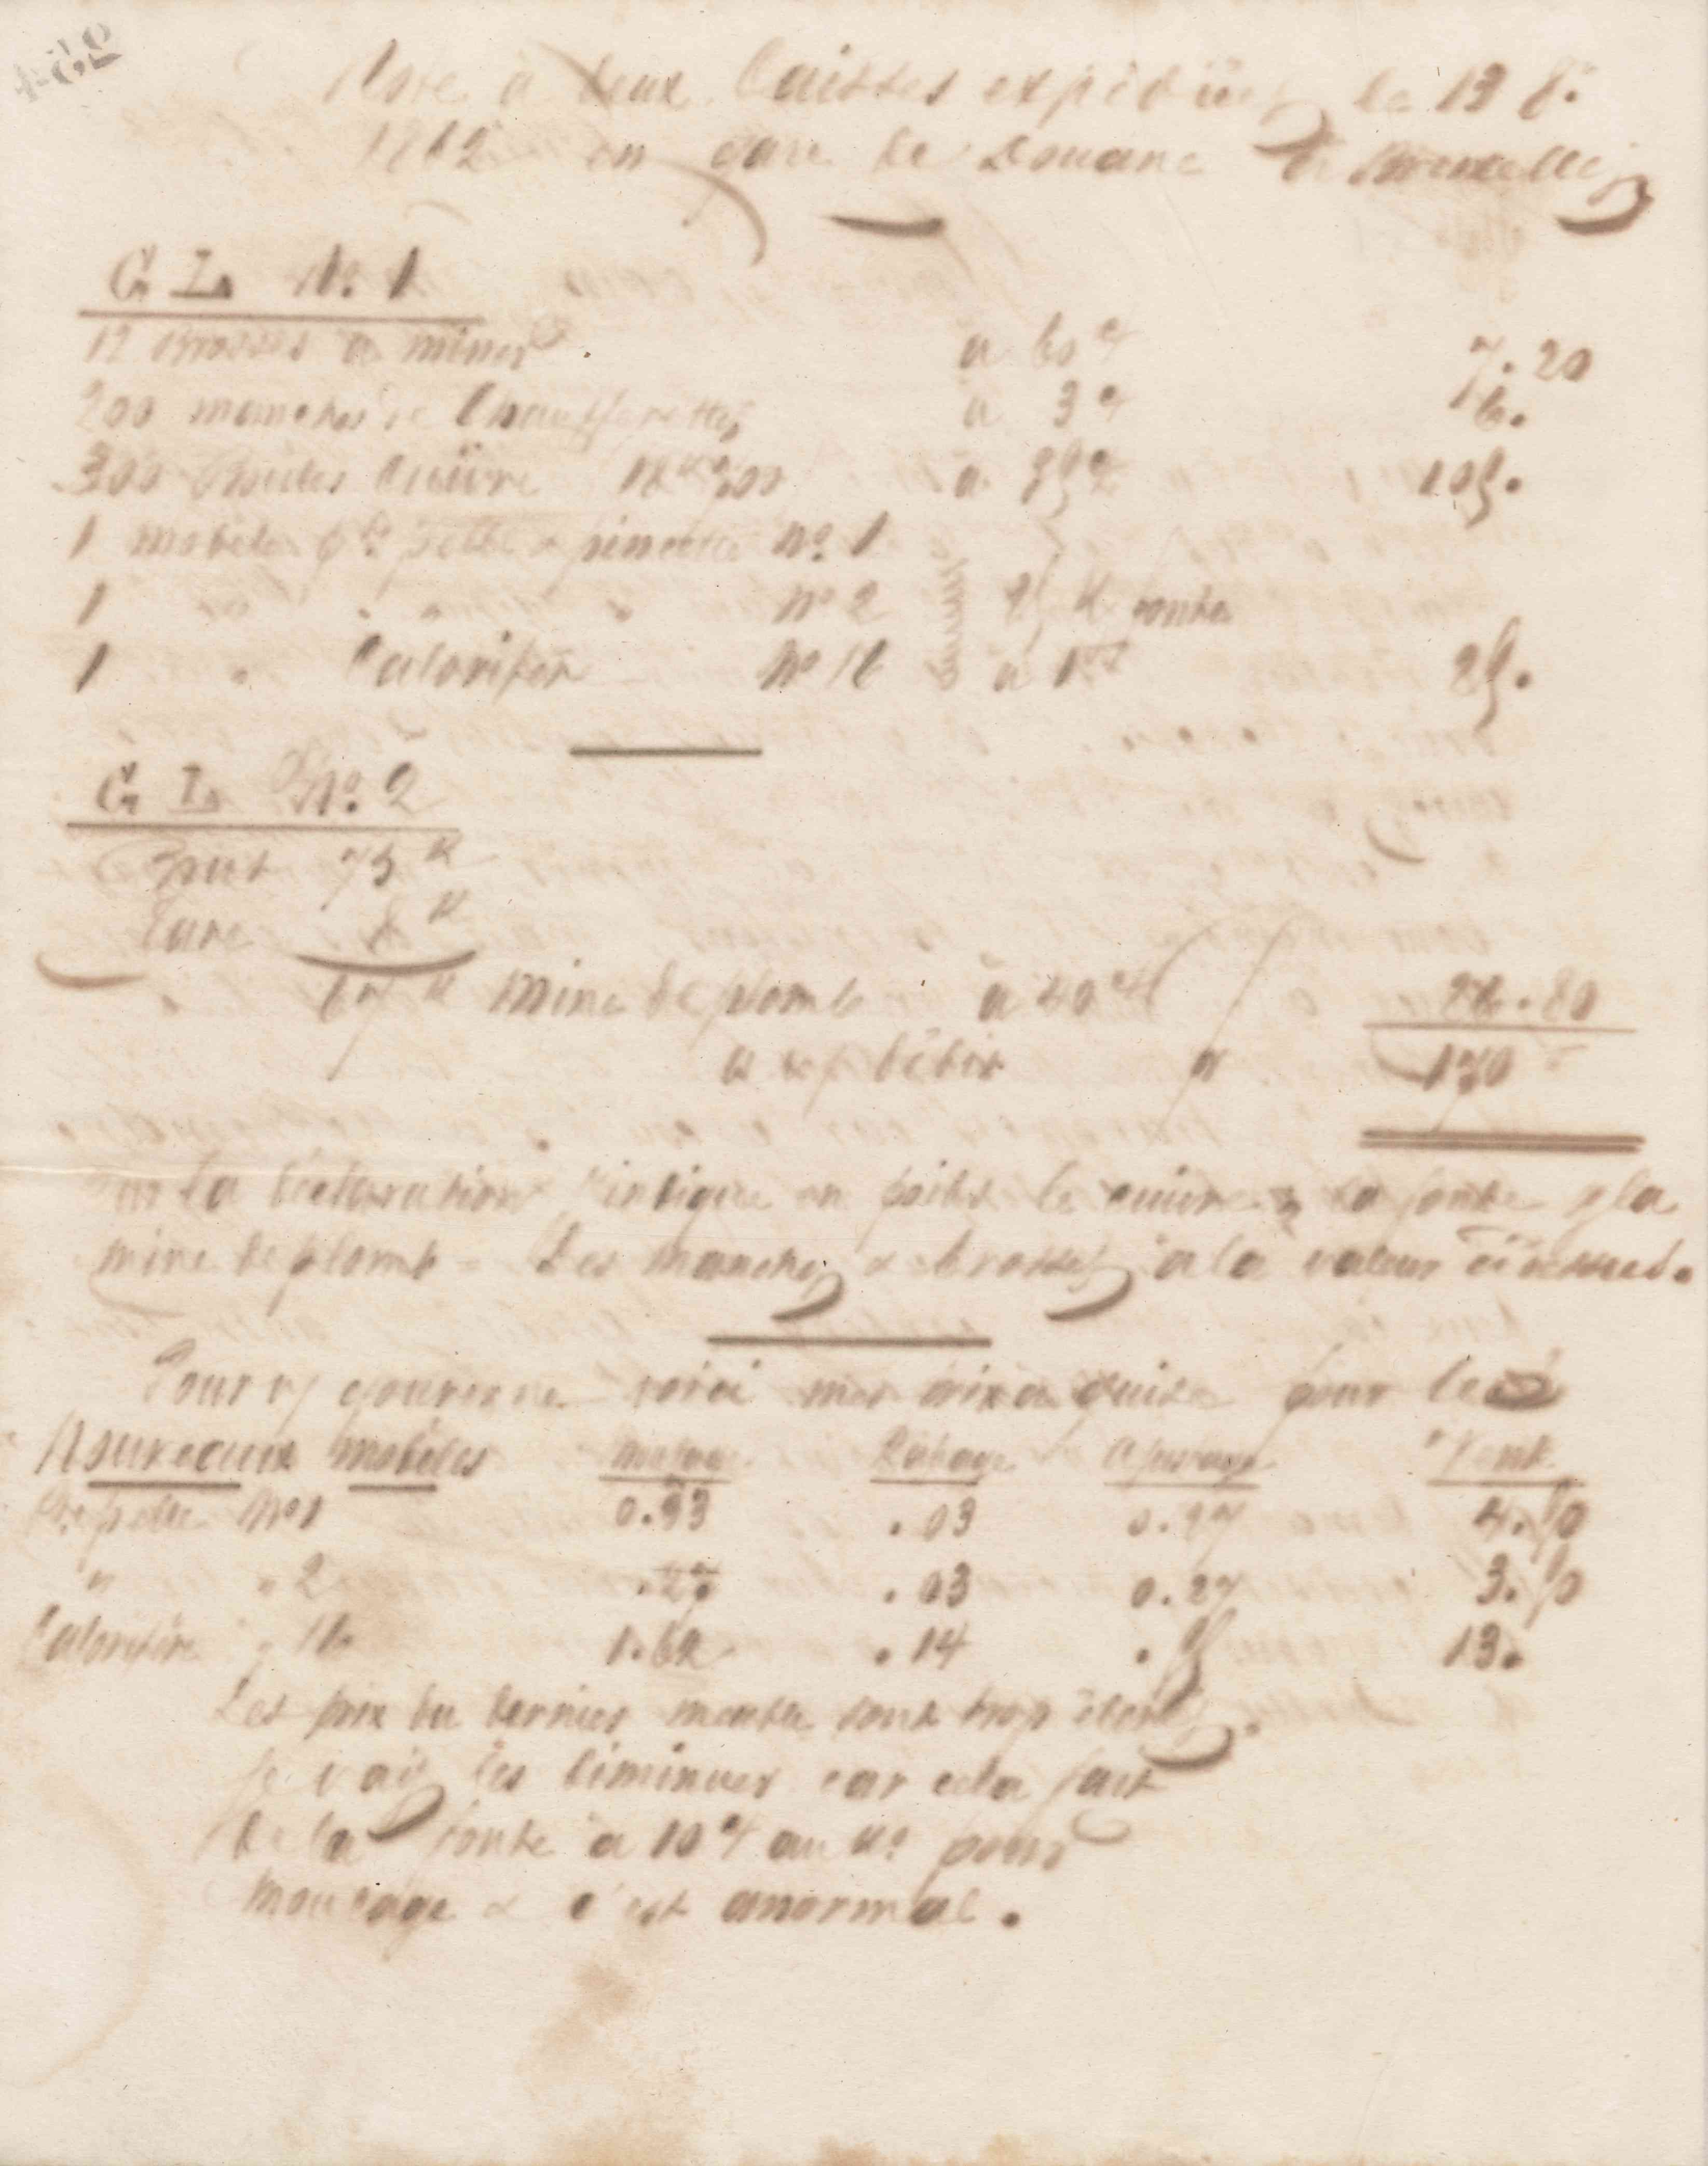 452
Note à deux Caisses expédiées le 13 8.e
1862 en gare de Douane de Bruxelles
G L No. 1
12 brosses à mines à 60 c 7.20
200 manches de Chaufferettes à 3 c 6.
300 Boules Cuivre à 35 c 105.
1 modèle pelle & pincette No. 1
1 " " " No 2 25 K fonte
1 " Calorifère No 16 à 1 F 25.
G L No. 2
Brut 75 K
Tare 8 K
67 K mine de plomb à 40 c 26.80
à v/ débit F 170
Sur la déclaration indiquer en poids le cuivre, la fonte & la
mine de plomb - Les manches & brosses à la valeur ci dessus.
Pour v/ gouverne voici mes prix de suite pour les
Nouveaux modèles Moulage Rapage Ajustage Vente
pelle No 1 0.33 .03 0.27 4.50
" " 2 .27 .03 0.27 3.50
Calorifère " 16 1.62 .14 . 13.
Les prix du dernier modèle sont trop élevés.
Je vais les diminuer car cela fait
de la fonte à 10 c au Ko pour
moulage & c'est anormal.